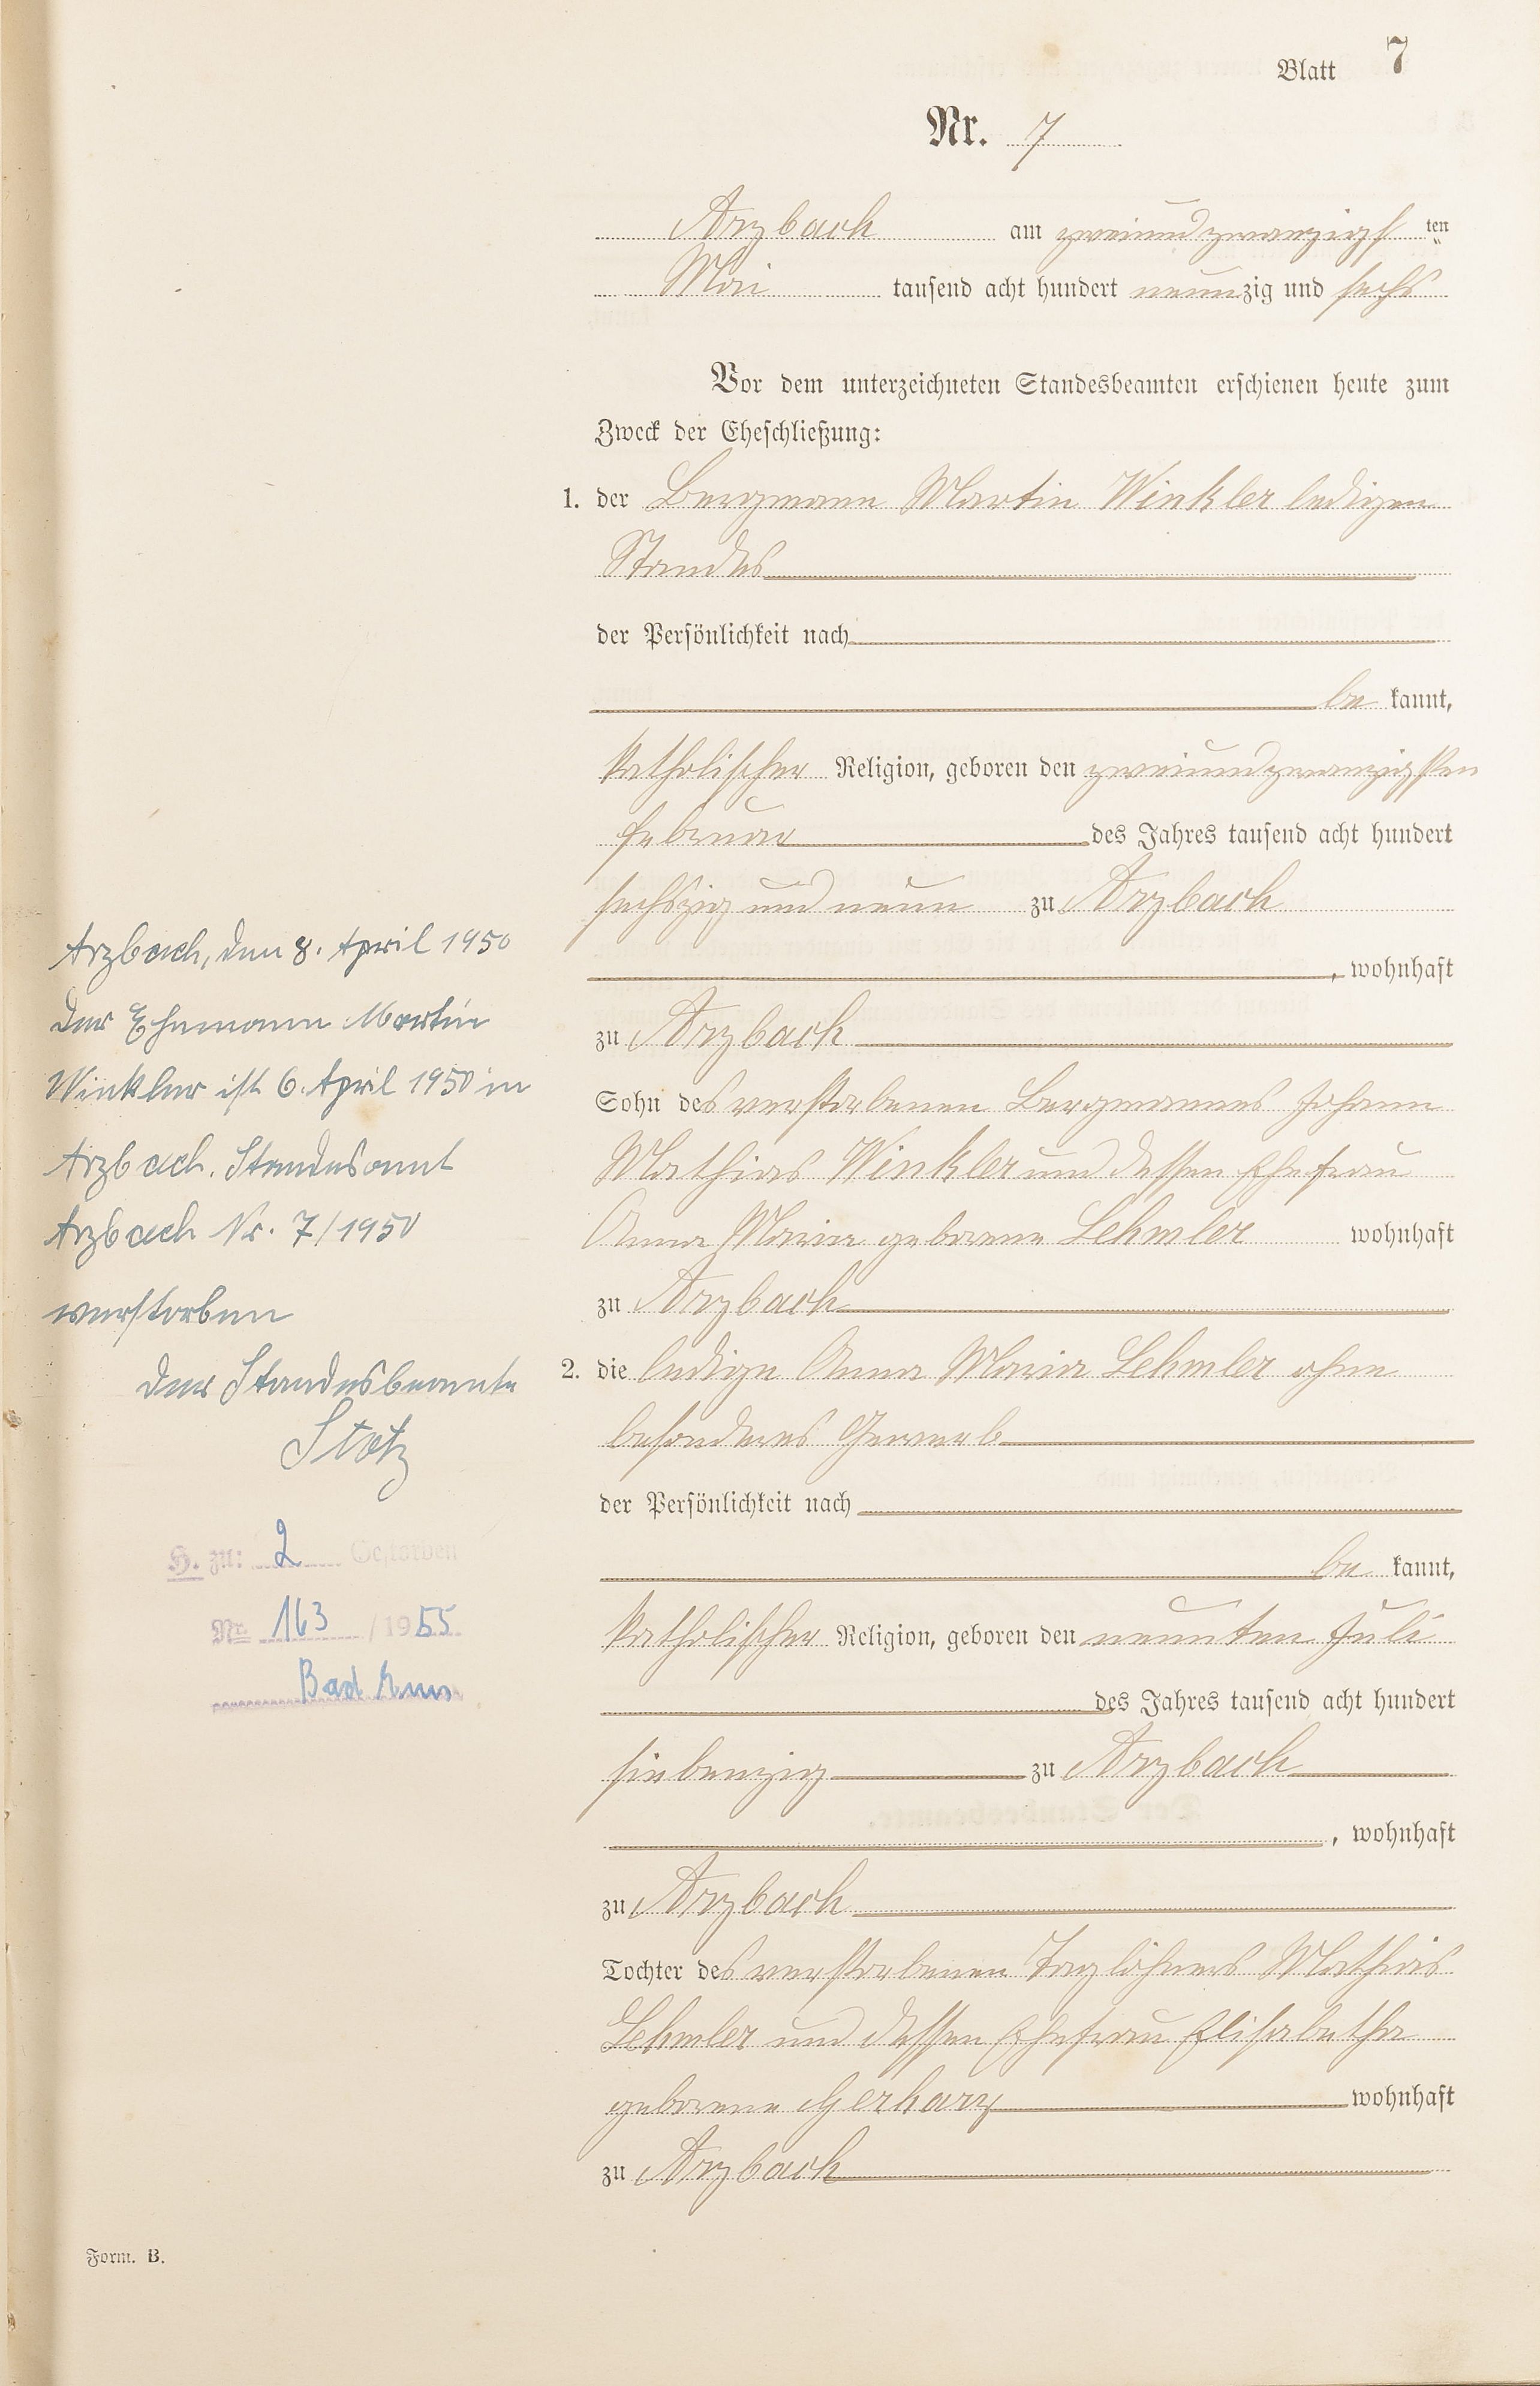 Blatt 7
Nr. 7
Arzbach am zweiundzwanzigsten
Mai tausend acht hundert neunzig und sechs
Vor dem unterzeichneten Standesbeamten erschienen heute zum
Zweck der Eheschließung:
1. der Bergmann Martin Winkler ledigen
Standes
der Persönlichkeit nach
be kannt,
katholischer Religion, geboren den zweiundzwanzigsten
Februar des Jahres tausend acht hundert
sechszig und neun zu Arzbach
, wohnhaft
zu Arzbach
Sohn des verstorbenen Bergmannes Johann
Mathias Winkler und dessen Ehefrau
Anna Maria geborene Lehmler wohnhaft
zu Arzbach
2. die ledige Anna Maria Lehmler ohne
besonderes Gewerb
der Persönlichkeit nach
be kannt,
katholischer Religion, geboren den neunten Juli
des Jahres tausend acht hundert
siebenzig zu Arzbach
, wohnhaft
zu Arzbach
Tochter des verstorbenen Taglöhners Mathias
Lehmler und dessen Ehefrau Elisabetha
geborene Gerharz wohnhaft
zu Arzbach
Arzbach, den 8. April 1950
Der Ehemann Martin
Winkler ist 6. April 1950 in
Arzbach. Standesamt
Arzbach Nr. 7/1950
verstorben
Der Standesbeamte
Stotz
H. zu: 2 Gestorben
Nr. 163 / 1955
Bad Ems
Form. B.